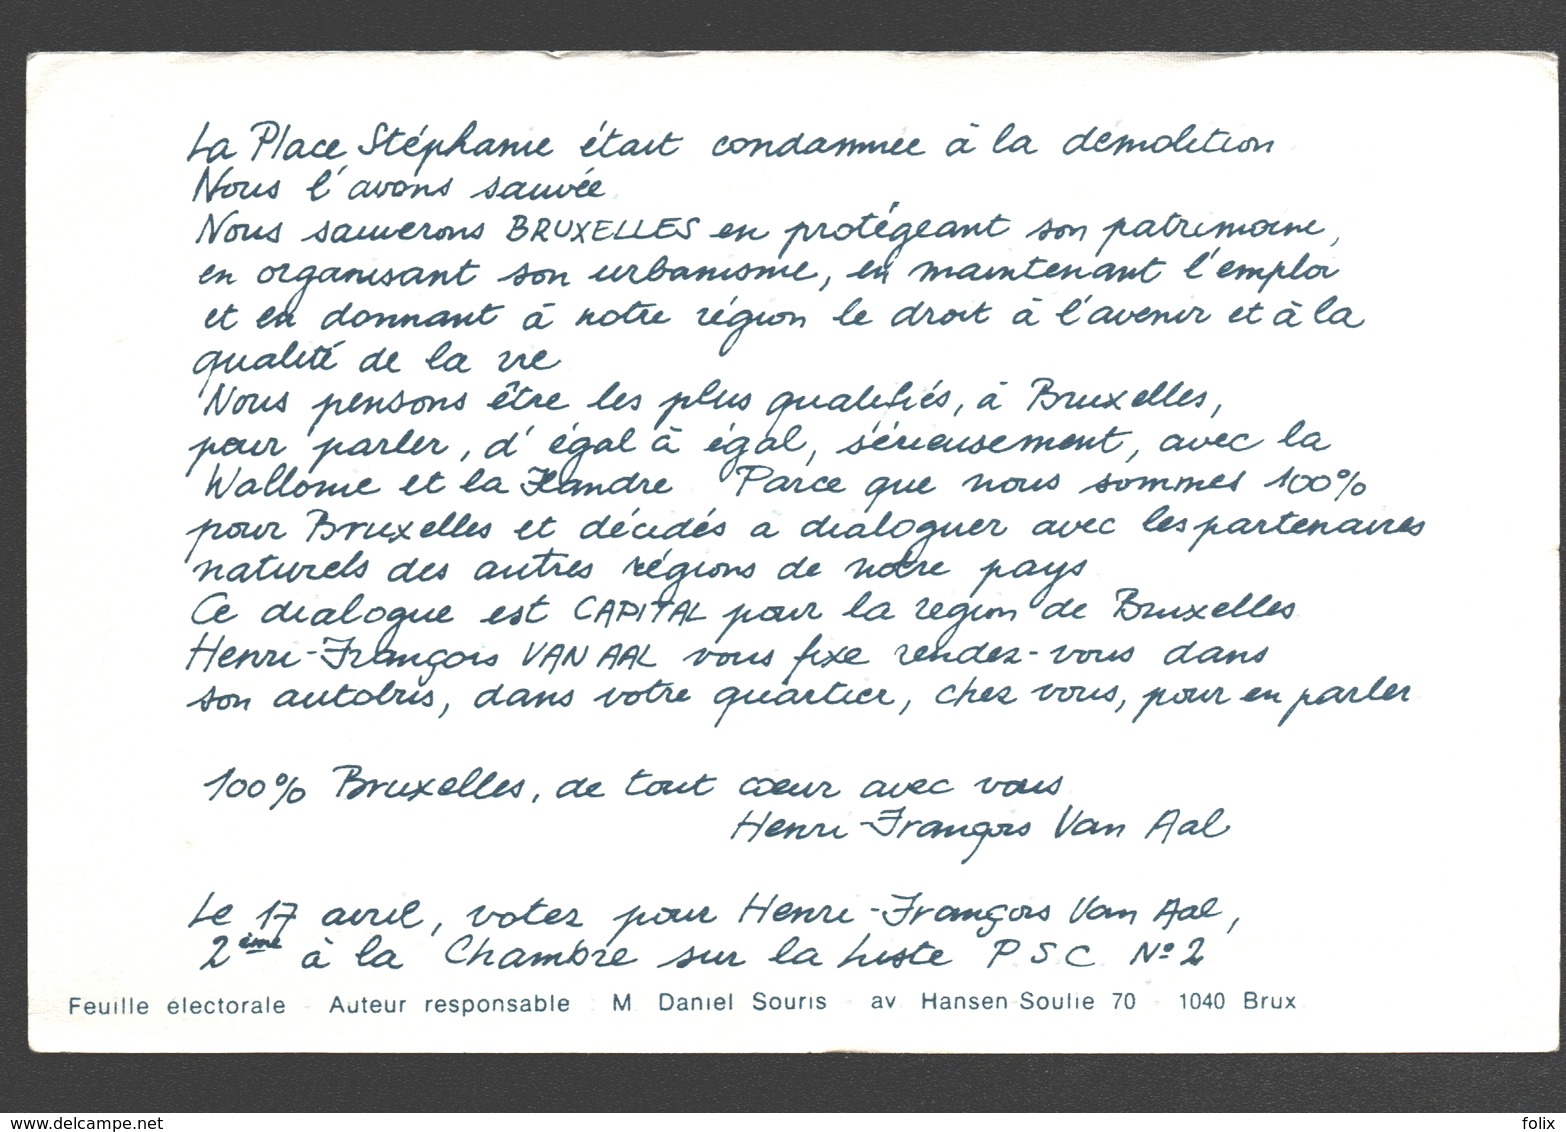 La Place Stéphanie était condamnée à la démolition
Nous l'avons sauvée
Nous sauverons BRUXELLES en protégeant son patrimoine,
en organisant son urbanisme, en maintenant l'emploi
et en donnant à notre région le droit à l'avenir et à la
qualité de la vie
Nous pensons être les plus qualifiés, à Bruxelles,
pour parler, d'égal à égal, sérieusement, avec la
Wallonie et la Flandre Parce que nous sommes 100%
pour Bruxelles et décidés a dialoguer avec les partenaires
naturels des autres régions de notre pays
Ce dialogue est CAPITAL pour la région de Bruxelles
Henri-François VAN AAL vous fixe rendez-vous dans
son autobus, dans votre quartier, chez vous, pour en parler
100% Bruxelles, de tout cœur avec vous
Henri-François Van Aal
Le 17 avril, votez pour Henri-François Van Aal,
2ème à la Chambre sur la liste PSC N° 2
Feuille électorale - Auteur responsable : M Daniel Souris - av Hansen-Soulie 70 - 1040 Brux
folix
www.delcampe.net